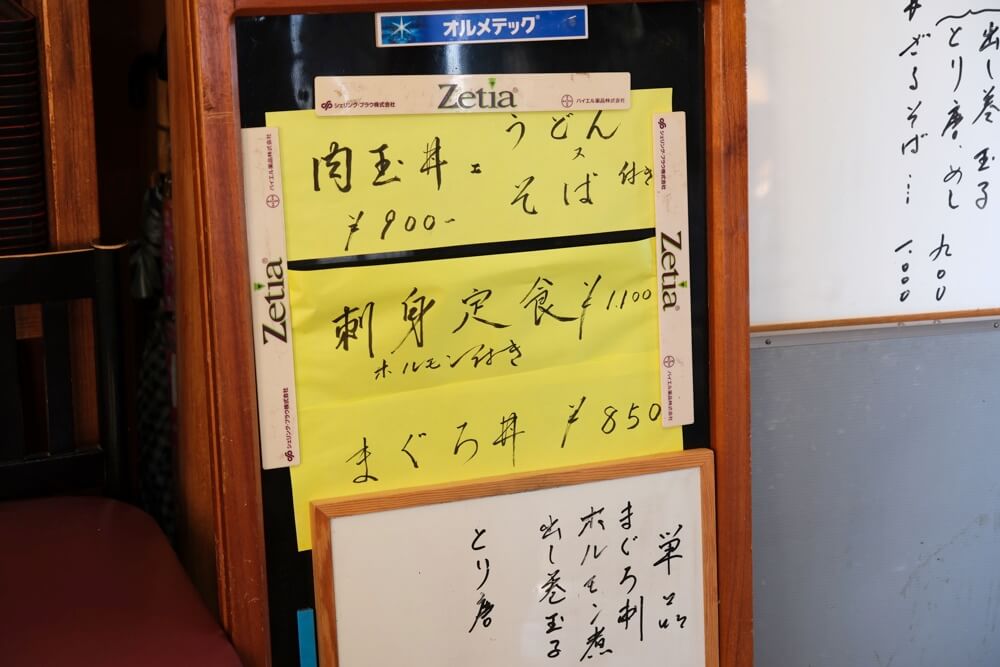 オルメテック®
シェリング・プラウ株式会社 Zetia® バイエル薬品株式会社
シェリング・プラウ株式会社 Zetia® バイエル薬品株式会社
シェリング・プラウ株式会社 Zetia® バイエル薬品株式会社
肉玉丼 うどん
ヌ
そば 付き
¥900-
刺身定食 ¥1.100
ホルモン付き
まぐろ丼 ¥850
単品
まぐろ刺
ホルモン煮
出し巻玉子
とり唐
出し巻玉子
とり唐・めし 九〇〇
ざるそば… 1.000